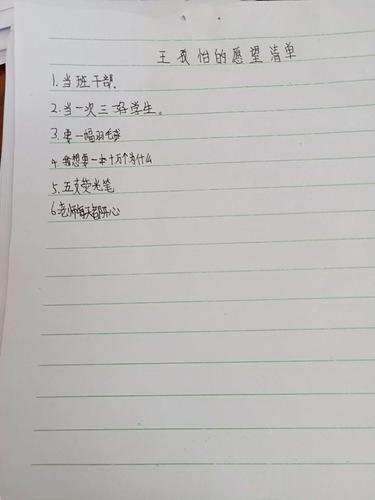 王我怡的愿望清单
1.当班干部.
2.当一次三好学生。
3.要一幅羽毛球
4.我想要一本十万个为什么
5.五支荧光笔
6.老师每天都开心